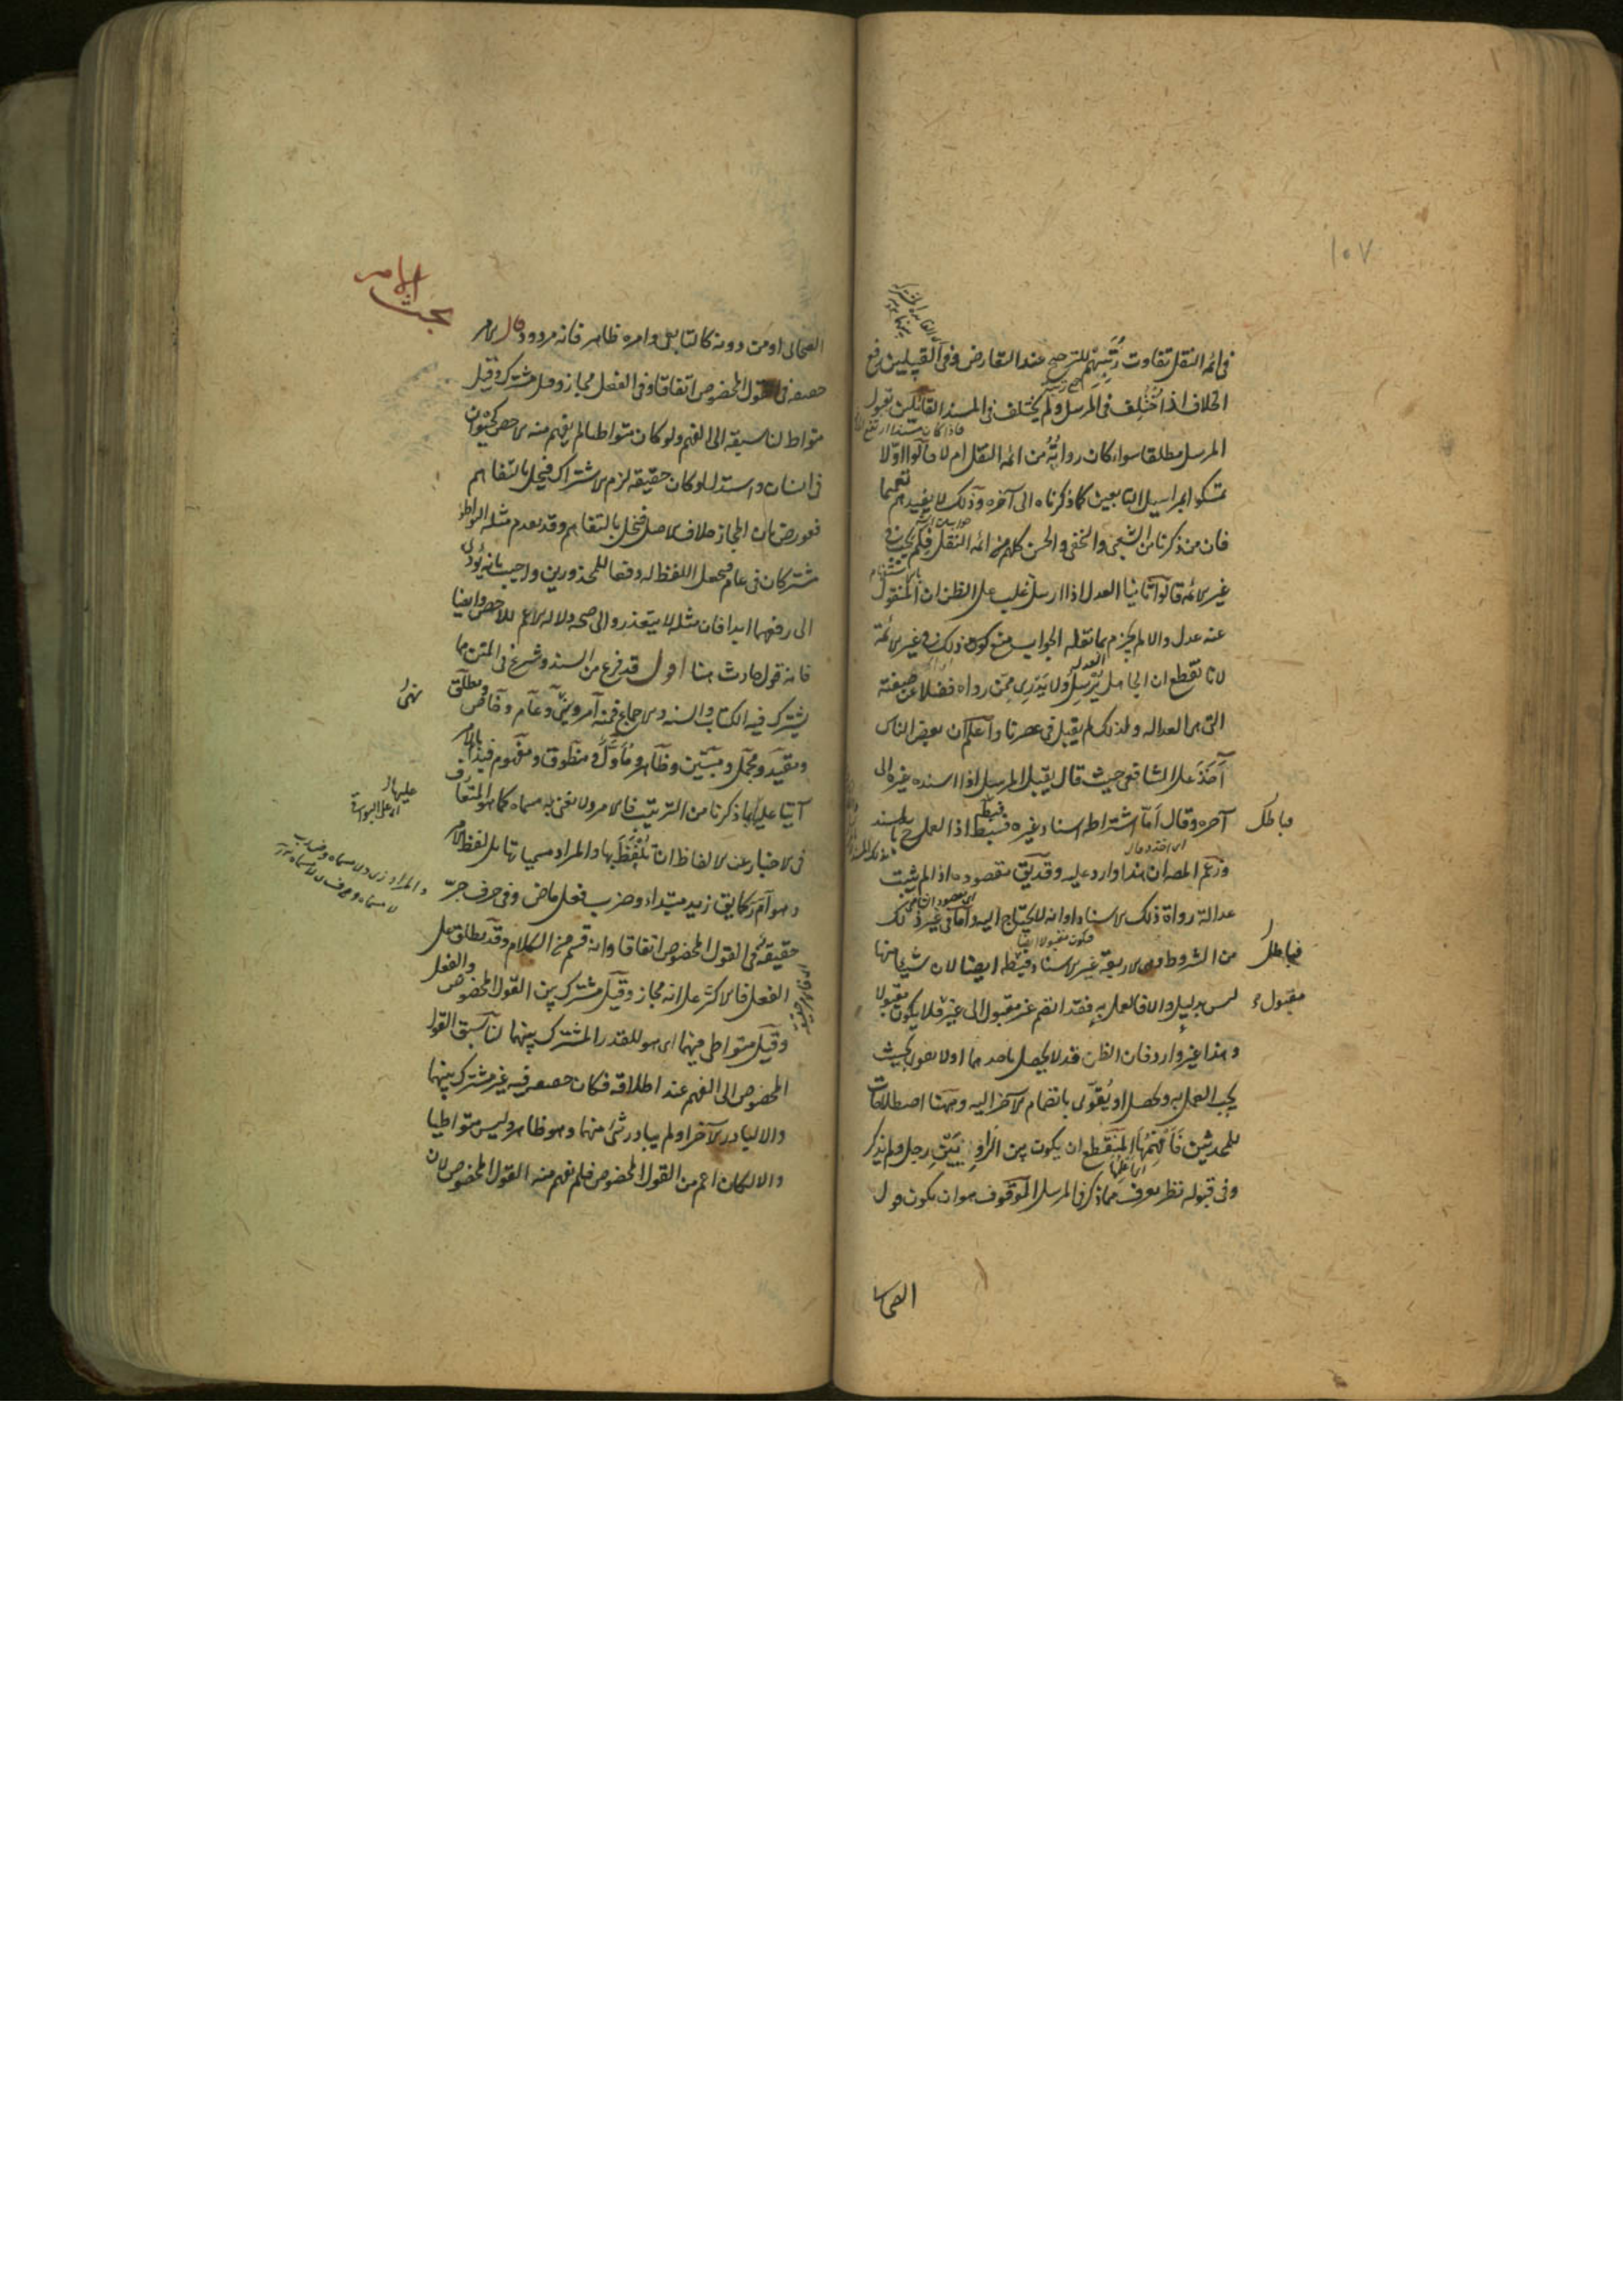 ١٠٧
في ائمة النقل تفاوت رتبتهم للترجيح عند التعارض وفي القبيلين رفع
الخلاف اذا اختلف في المرسل ولم يختلف في المسند القائلين بقبول
المرسل مطلقا سواء كان رواته من ائمة النقل ام لا قالوا اولا
تمسكوا بمراسيل التابعين كما ذكرناه الى آخره وذلك لا يفيدهم تعميما
فان من ذكرنا من الشعبي والنخعي والحسن كلهم من ائمة النقل فلم يجب في
غير الائمة قالوا ثانيا العدل اذا ارسل غلب على الظن ان المنقول
عنه عدل والا لم يجزم بما نقله الجواب منع كون ذلك في غير الائمة
لانا نقطع ان الجاهل يرسل ولا يدري عمن رواه فضلا عن صفته
التي هي العدالة ولذلك لم يقبل في عصرنا واعلم ان بعض الناس
آخذ على الشافعي حيث قال يقبل المرسل اذا اسنده غيره الى
آخره وقال اما اشتراط اسناد غيره فباطل اذ العمل ح بالمسند
وزعم المص ان هذا وارد عليه وقد يق مقصوده اذا لم يثبت
عدالة رواة ذلك الاسناد او انه لا يحتاج اليه واما في غير ذلك
من الشروط وهي الاربعة غير الاسناد فباطله ايضا لان شيئا منها
ليس بدليل والا فالعمل به فقد انضم غير مقبول الى غير مقبول فلا يكون مقبولا
وهذا غير وارد فان الظن قد لا يحصل باحدهما او لا يقوى بحيث
يجب العمل به ويحصل او يقوى بانضمام الآخر اليه وههنا اصطلاحات
للمحدثين فالمنقطع ان يكون بين الراويين رجل ولم يذكر
وفي قبوله نظر يعرف مما ذكر في المرسل الموقوف هو ان يكون قول
الصحابي
فباطل
فباطل
مقبول
بحث الامر
الصحابي او من دونه كالتابعي وامره ظاهر فانه مردود قال الامر
حقيقة في القول المخصوص اتفاقا وفي الفعل مجاز وقيل مشترك وقيل
متواط لنا سبقه الى الفهم ولو كان متواطئا لم يفهم منه الاخص كحيوان
في انسان واستدل لو كان حقيقة لزم الاشتراك فيخل بالتفاهم
فعورض بان المجاز خلاف الاصل فيخل بالتفاهم وقد تقدم مثله التواطؤ
مشتركان في عام فيجعل اللفظ له دفعا للمحذورين واجيب بانه يؤدي
الى رفعهما ابدا فان مثله لا يتعذر والى صحة دلالة الاعم للاخص وايضا
فانه قول حادث هنا اقول قد فرغ من السند وشرع في المتن مما
يشترك فيه الكتاب والسنة والاجماع فمنه امر ونهي وعام وخاص ومطلق
ومقيد ومجمل ومبين وظاهر ومأول ومنطوق ومفهوم فبدأ بالامر
آتيا عليها بما ذكرنا من الترتيب فالامر ولا نعني به مسماه كما هو المتعارف
في الاخبار عن الالفاظ ان تلفظ بها والمراد مسمياتها بل لفظ الامر
وهو أ م ر كما يق زيد مبتداء وضرب فعل ماض وفي حرف جر
حقيقة في القول المخصوص اتفاقا وانه قسم من الكلام وقد يطلق على
الفعل فالاكثر على انه مجاز وقيل مشترك بين القول المخصوص والفعل
وقيل متواطي فيهما اي هو للقدر المشترك بينهما لنا سبق القول
المخصوص الى الفهم عند اطلاقه فكان حقيقة فيه غير مشترك بينهما
والا لتبادر الآخر او لم يتبادر شئ منهما وهو ظاهر وليس متواطيا
والا لكان اعم من القول المخصوص فلم يفهم منه القول المخصوص لان